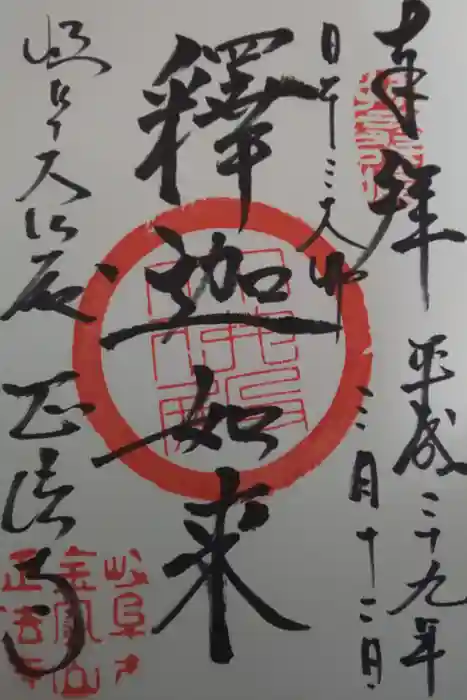 奉拜
平成二十九年
三月十二日
日本三大佛
釋迦如来
岐阜大仏殿
正法寺
岐阜市
金鳳山
正法寺